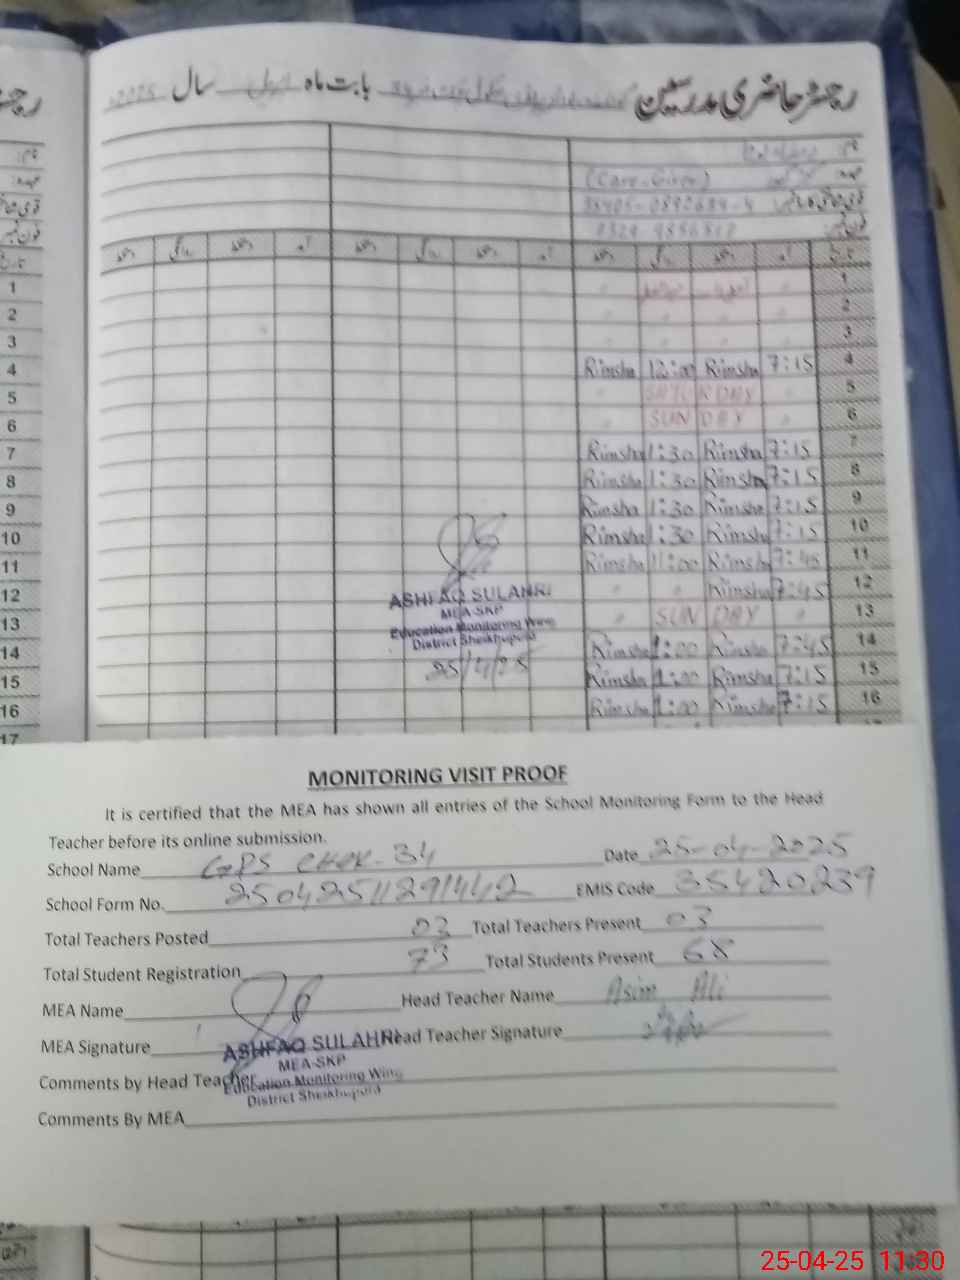 رجسٹر حاضری مدرسین بابت ماہ اپریل سال 2025
نام:
(Care Giver)
تاریخ آمد دستخط روانگی دستخط آمد دستخط روانگی دستخط آمد دستخط روانگی دستخط
1
2
3
4 7:15 Rimsha 12:00 Rimsha
5 SATURDAY
6 SUNDAY
7 7:15 Rimsha 1:30 Rimsha
8 7:15 Rimsha 1:30 Rimsha
9 7:15 Rimsha 1:30 Rimsha
10 7:15 Rimsha 1:30 Rimsha
11 7:45 Rimsha 11:00 Rimsha
12 7:45 Rimsha
13 SUNDAY
14 7:45 Rimsha 1:00 Rimsha
15 7:15 Rimsha 1:00 Rimsha
16 7:15 Rimsha 1:00 Rimsha
17
ASHFAQ SULAHRI
MEA-SKP
Education Monitoring Wing
District Sheikhupura
25/4/25
MONITORING VISIT PROOF
It is certified that the MEA has shown all entries of the School Monitoring Form to the Head
Teacher before its online submission.
School Name GPS CHAK-34 Date 25-04-2025
School Form No. 25042511291442 EMIS Code 35420239
Total Teachers Posted 03 Total Teachers Present 03
Total Student Registration 73 Total Students Present 68
MEA Name Head Teacher Name Asim Ali
MEA Signature Head Teacher Signature
ASHFAQ SULAHRI
MEA-SKP
Education Monitoring Wing
District Sheikhupura
Comments by Head Teacher
Comments By MEA
25-04-25 11:30